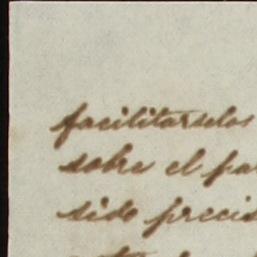 facilitarselos
sobre el pa
sido precis